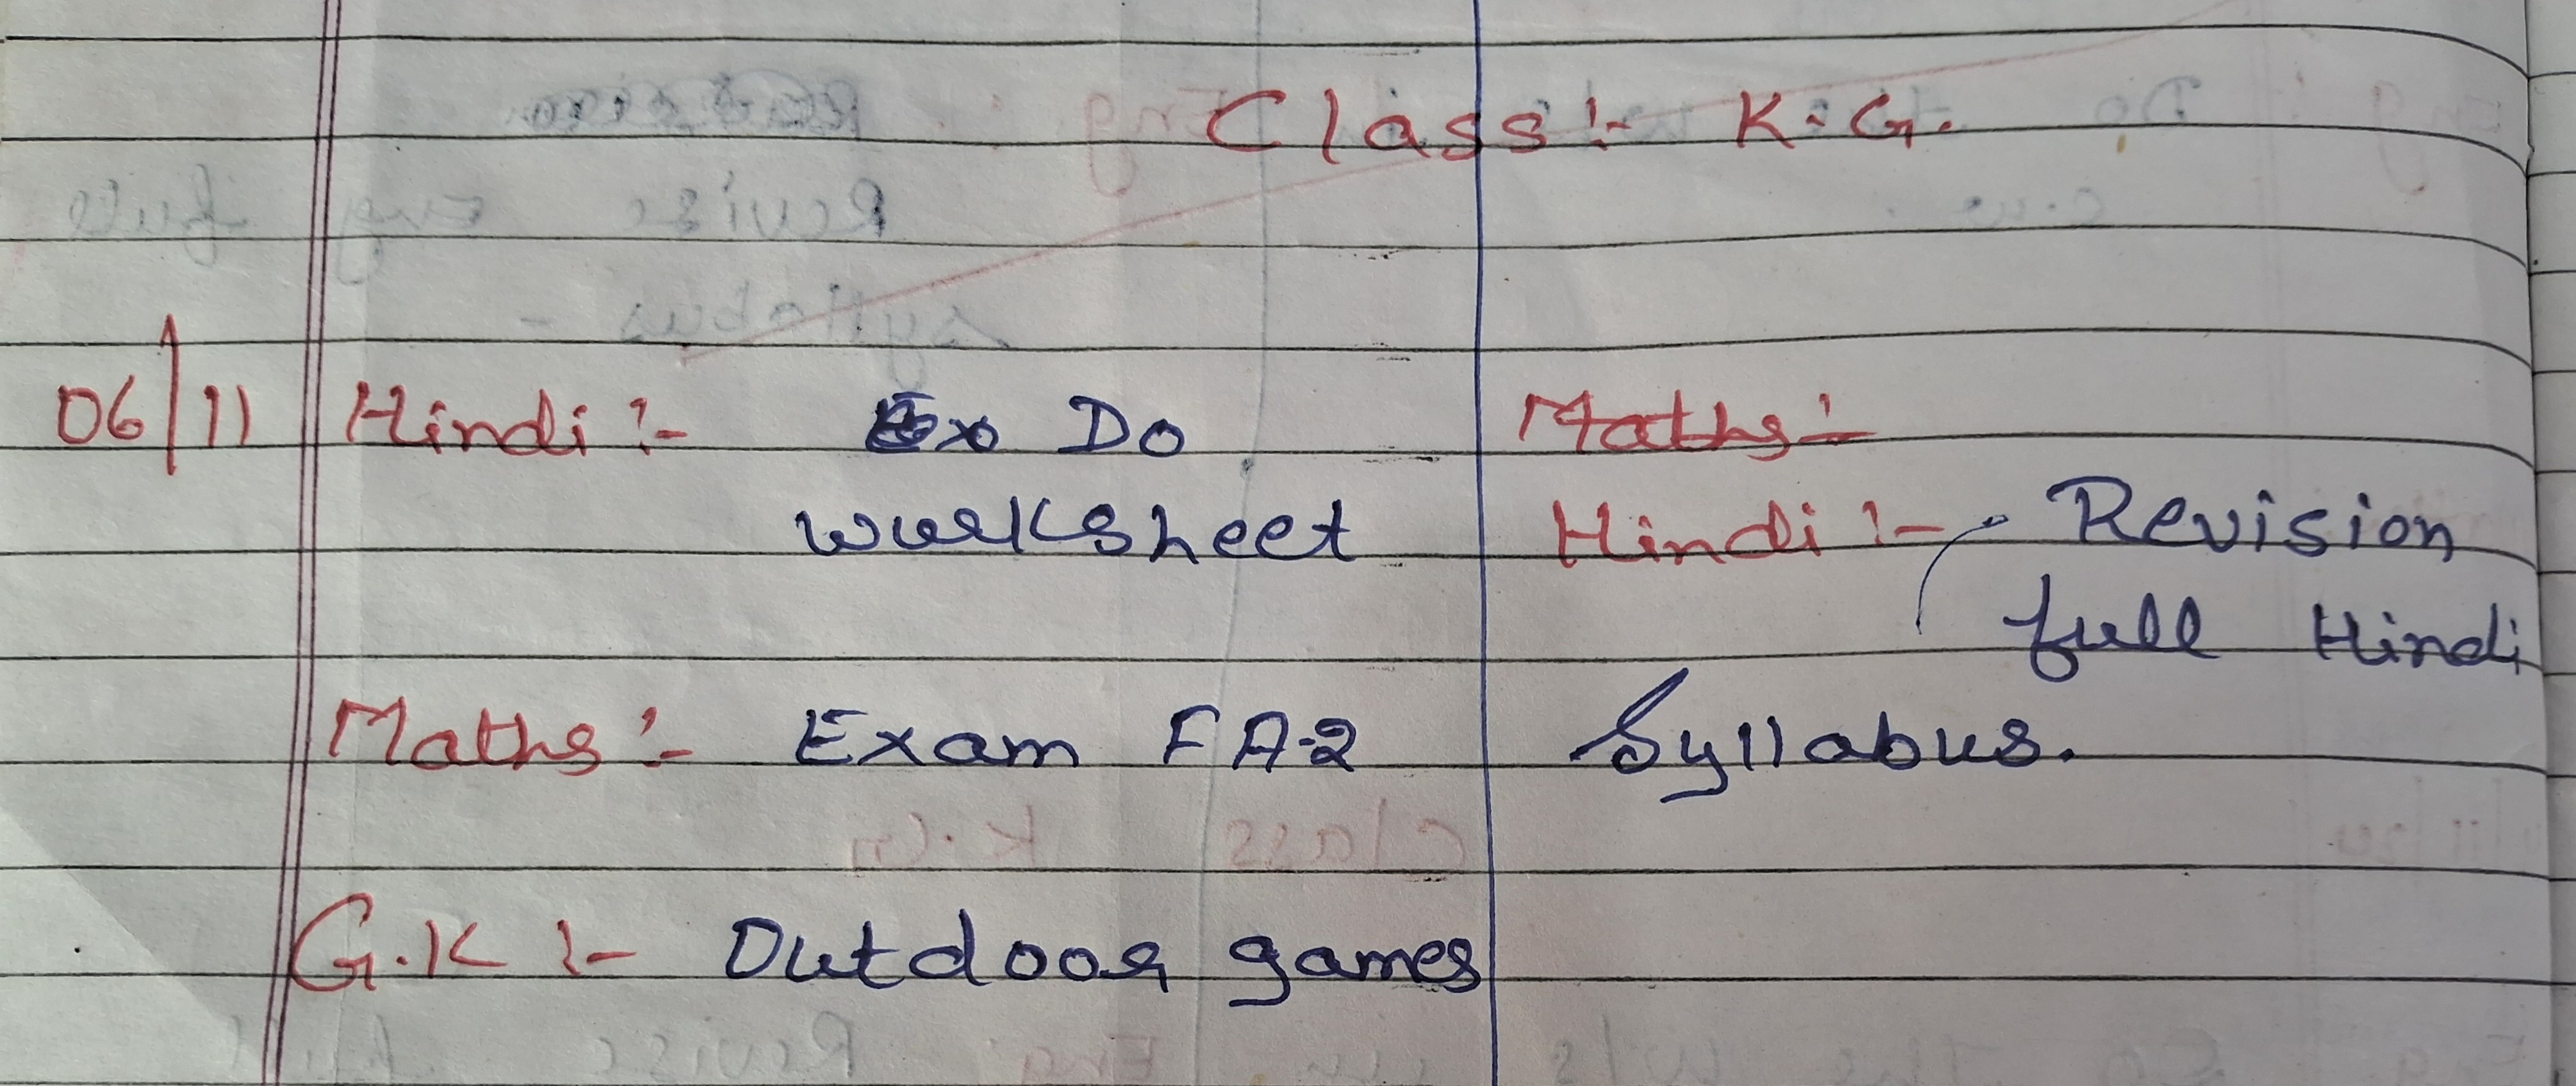 Class :- K.G.
06/11 Hindi :- Do
worksheet
Maths :- Exam FA-2
G.K :- Outdoor games
Maths :-
Hindi :- Revision
full Hindi
Syllabus.